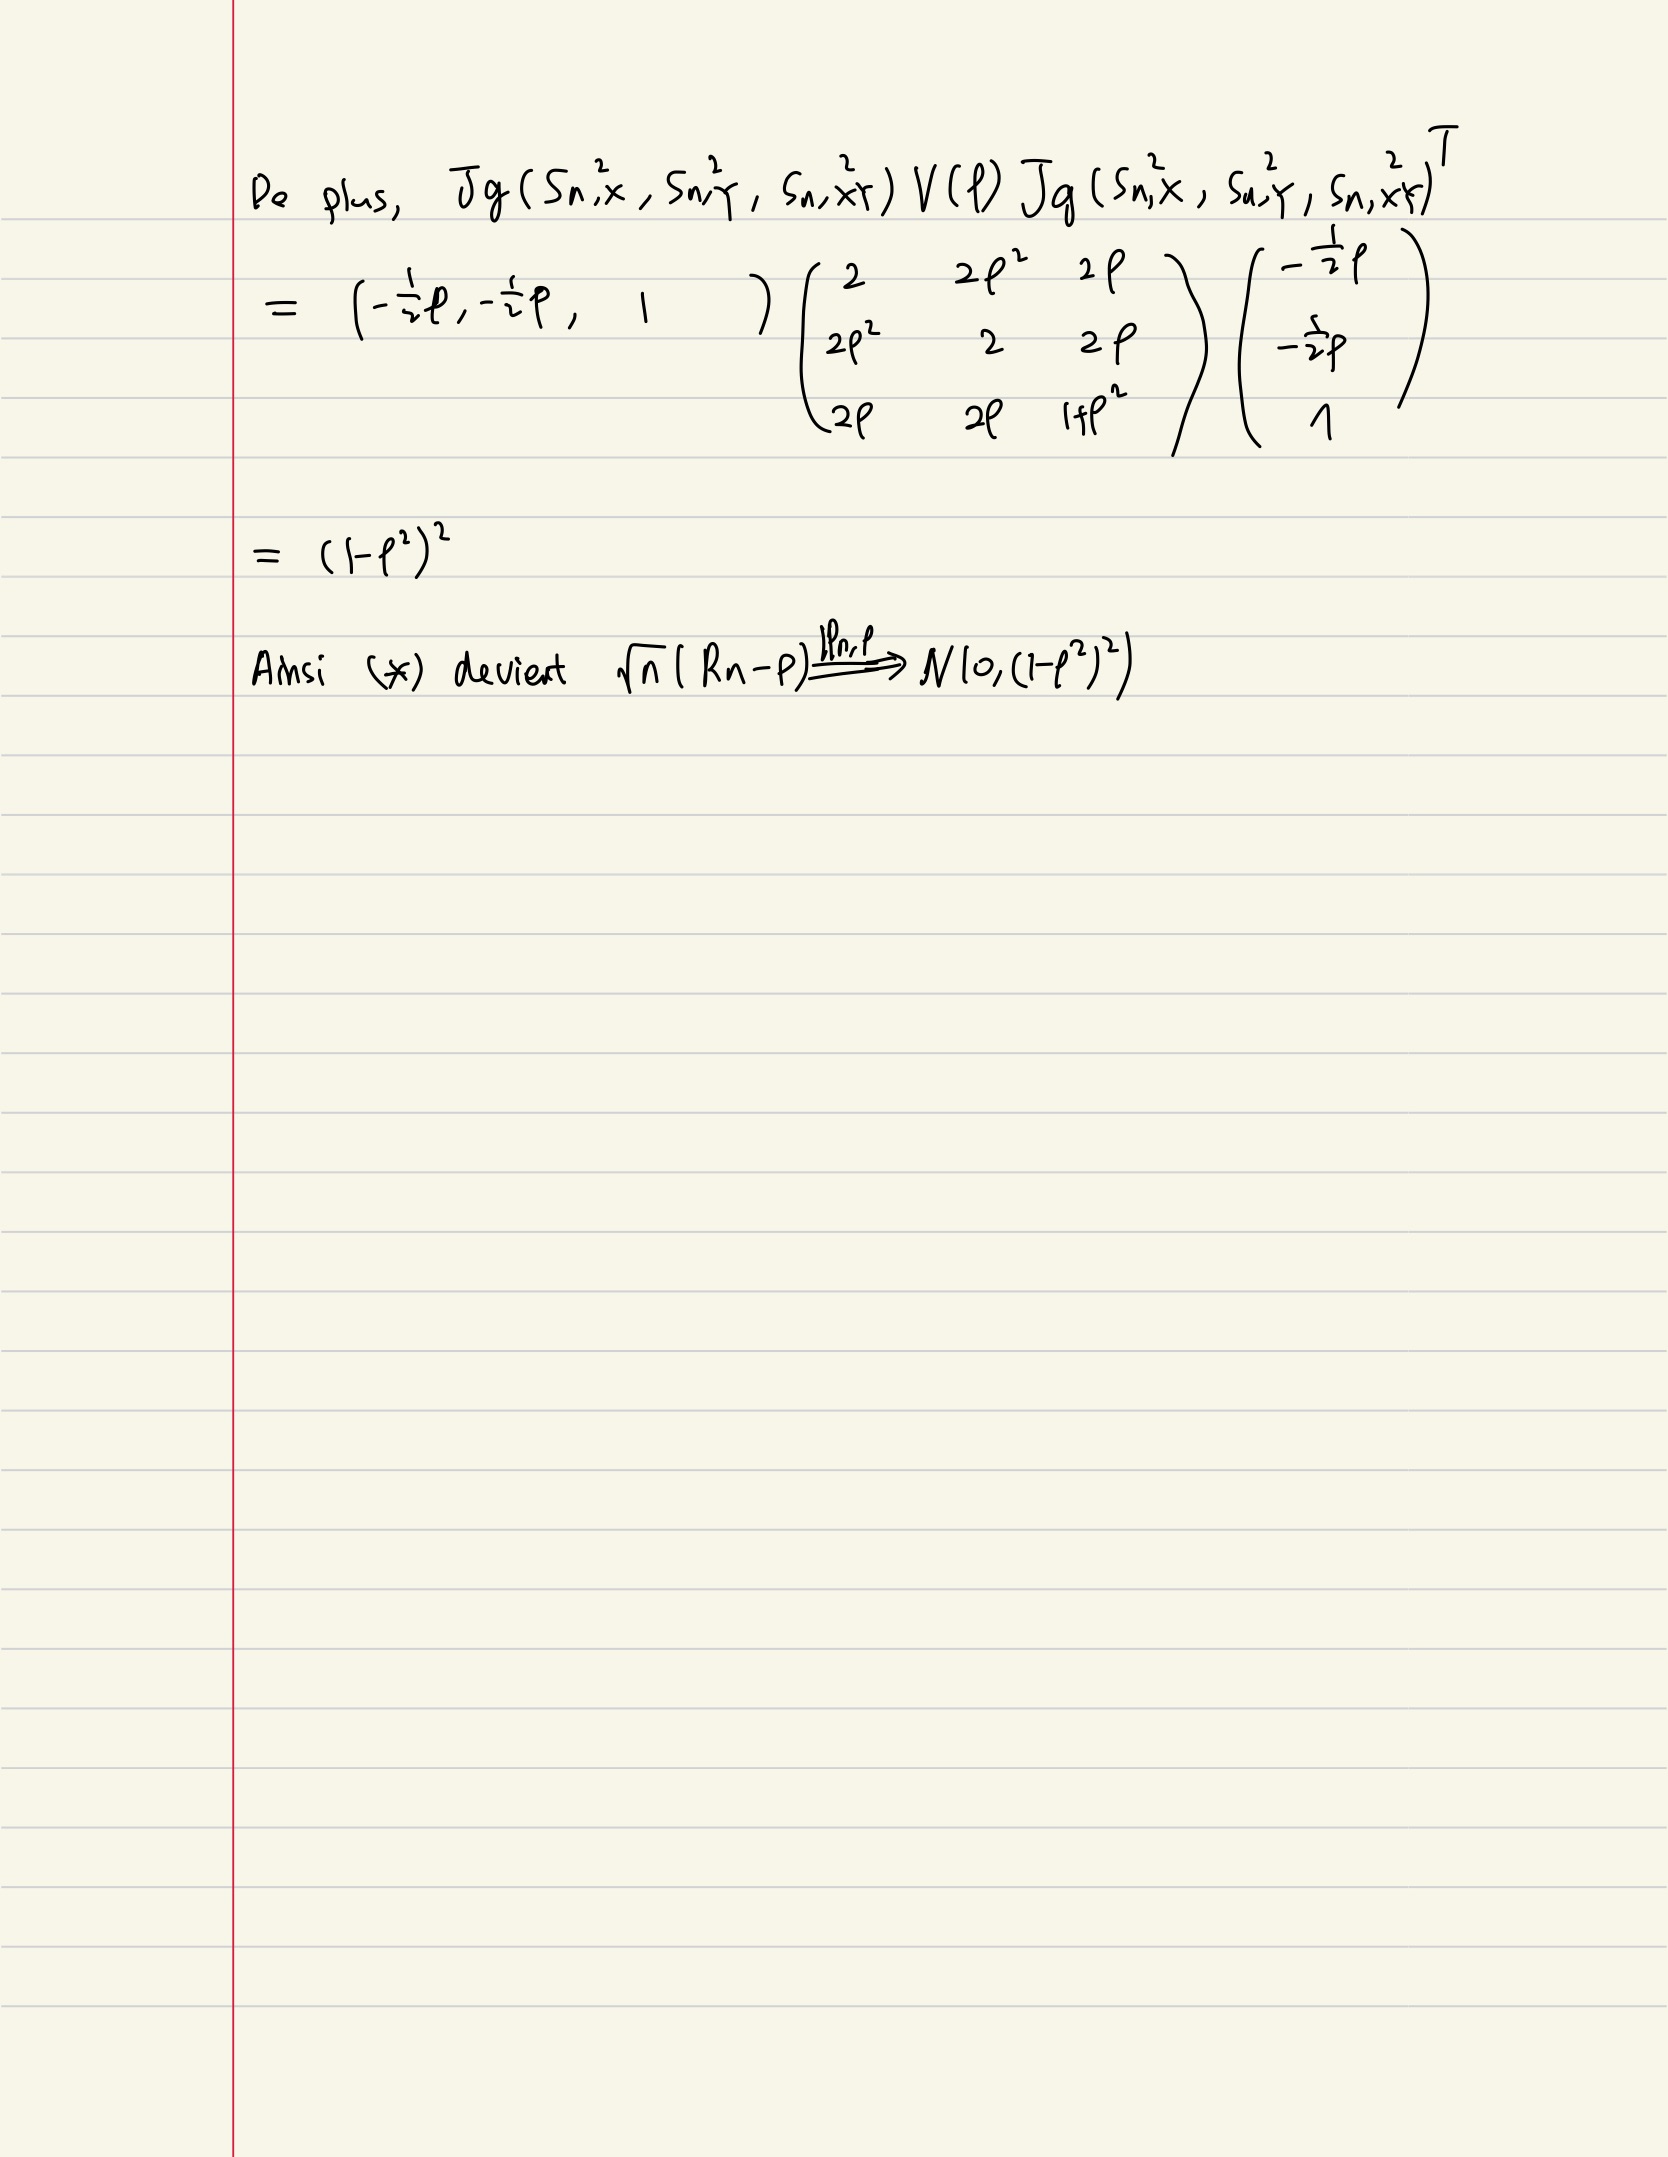 De plus, Jg(Sn,²x, Sn,²Y, Sn,²xY) V(ρ) Jg(Sn,²x, Sn,²Y, Sn,²xY)ᵀ
= (-½ρ, -½ρ, 1) (2 2ρ² 2ρ; 2ρ² 2 2ρ; 2ρ 2ρ 1+ρ²) (-½ρ; -½ρ; 1)
= (1-ρ²)²
Ainsi (*) devient √n(Rn-ρ) ⟹ ℙn,ρ N(0,(1-ρ²)²)